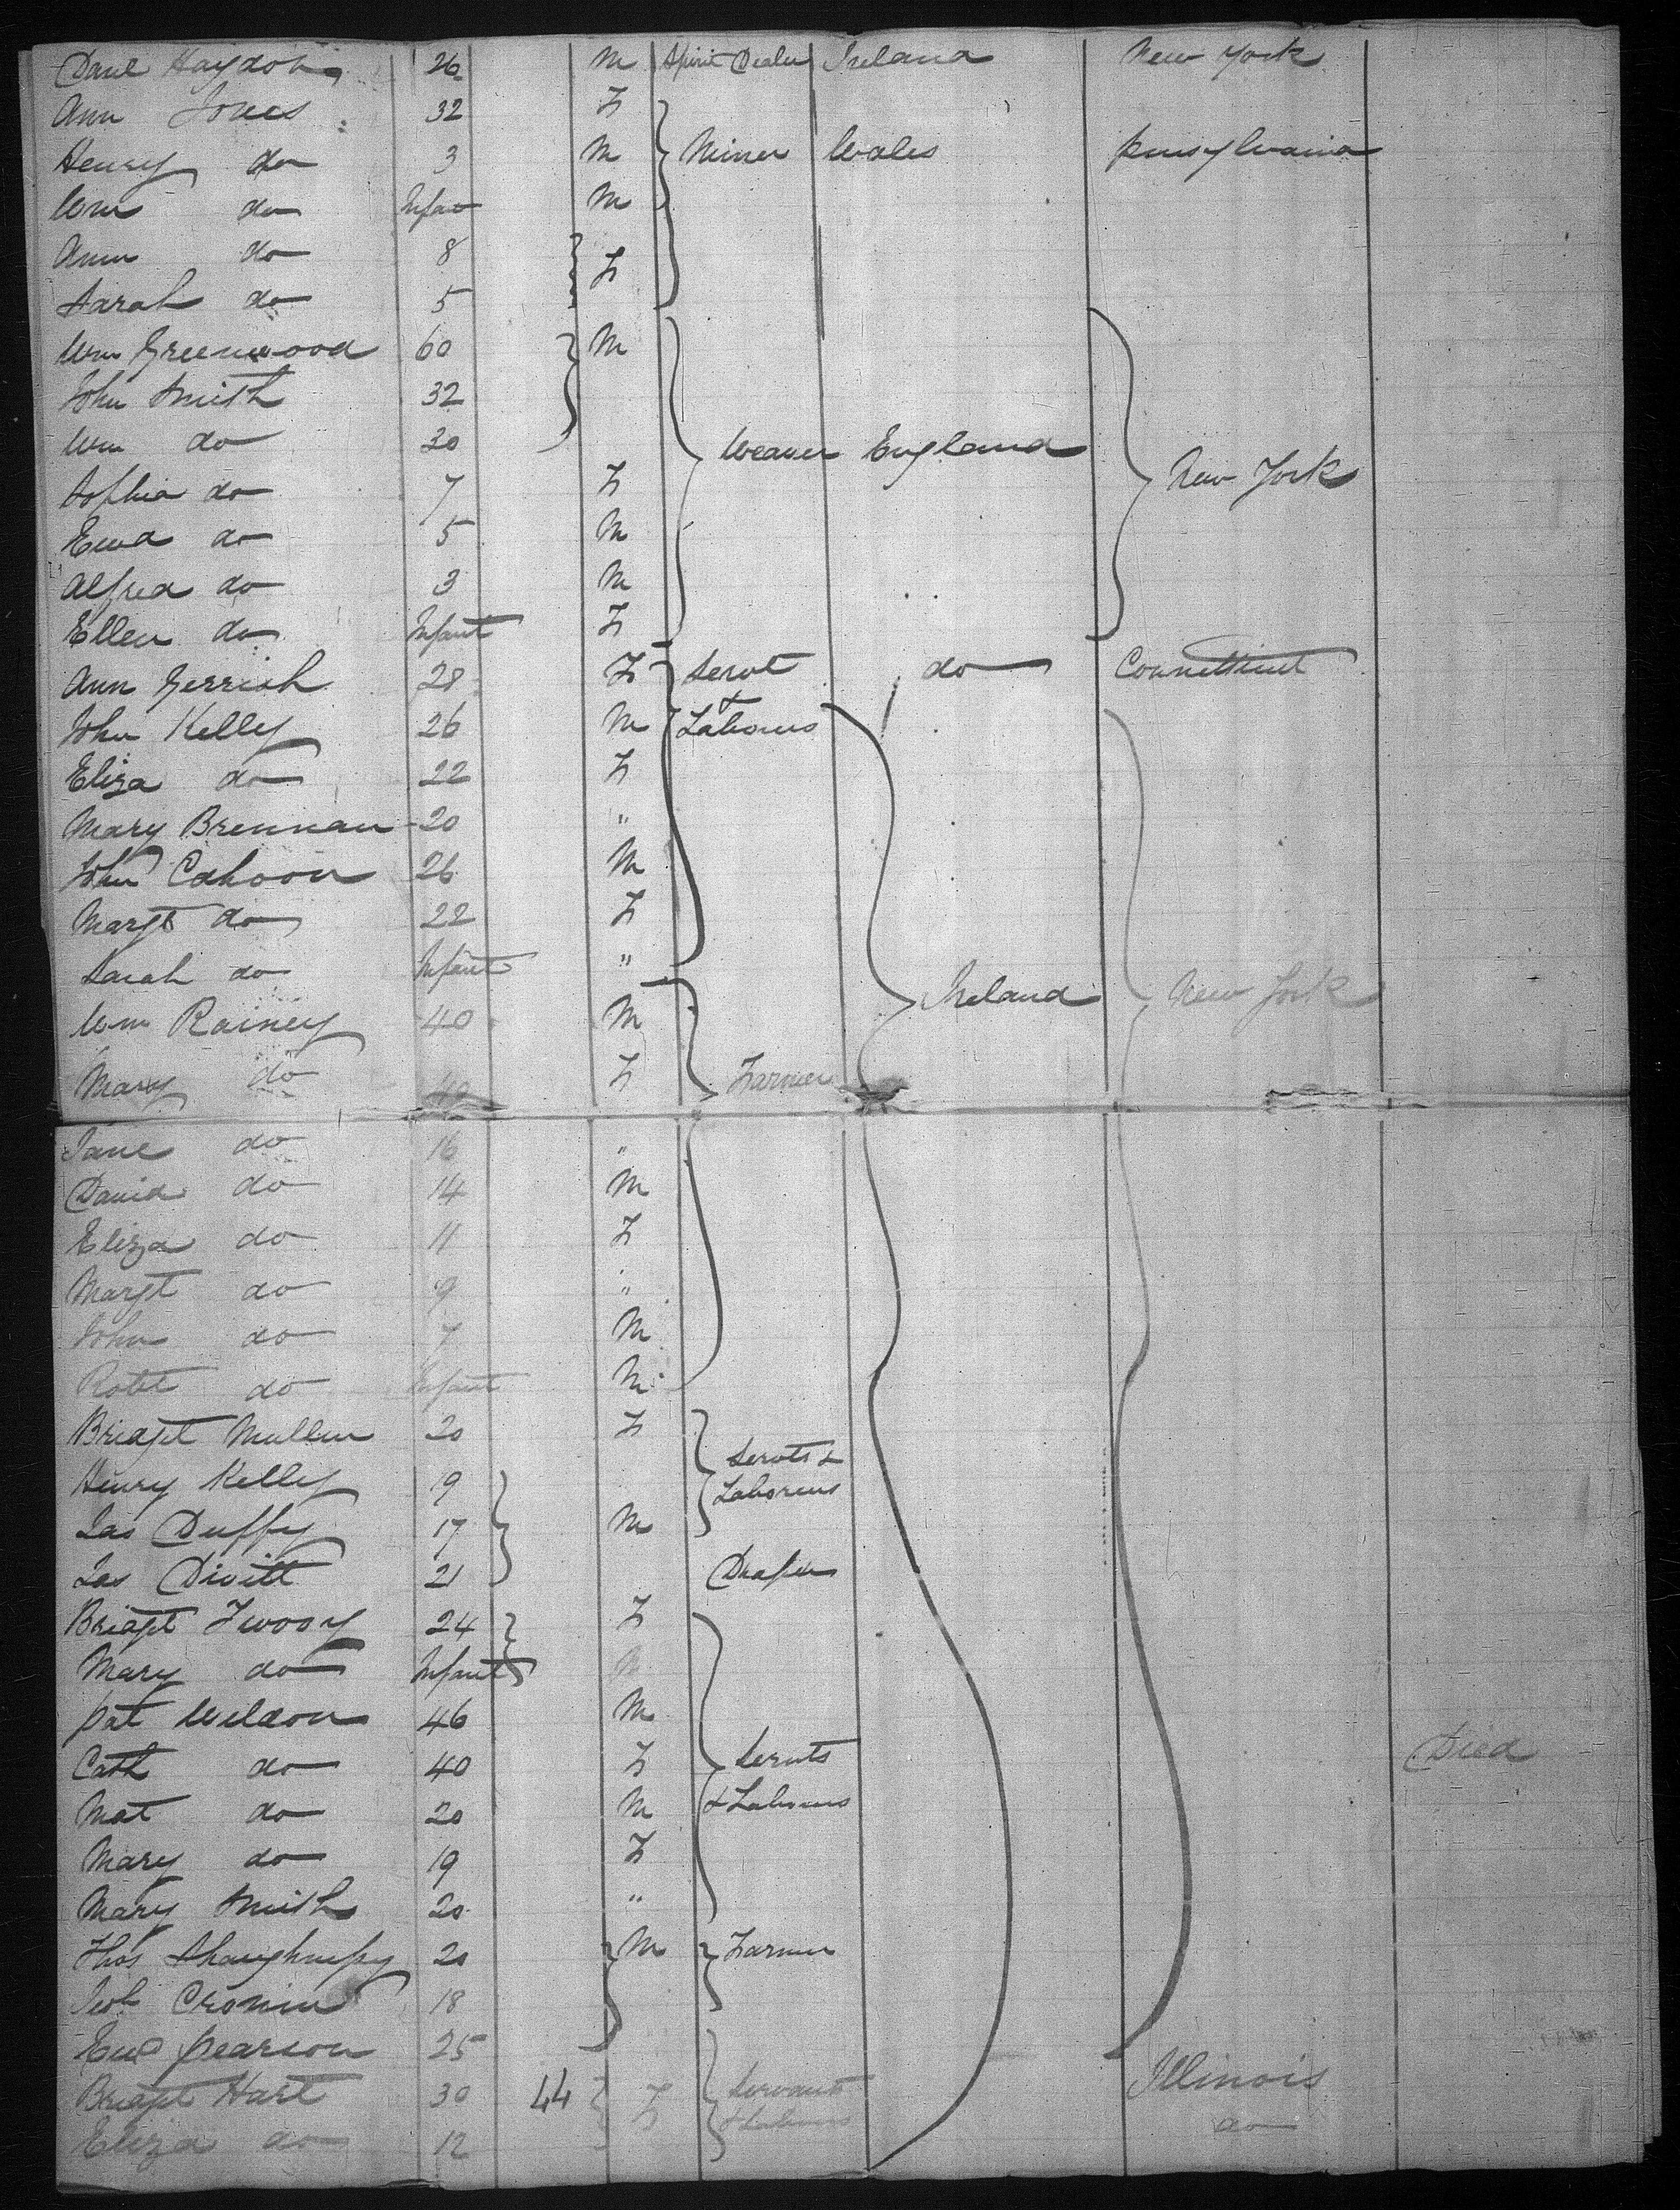 Danl Haydon 26 M Spirit Dealer Ireland New York
Ann Jones 32 F
Henry do 3 M Miner Wales Pensylvania
Wm do Infant M
Ann do 8 F
Sarah do 5
Wm Greenwood 60 M
John Smith 32
Wm do 30 Weaver England
Sophia do 7 F New York
Edwd do 5 M
Alfred do 3 M
Ellen do Infant F
Ann Gerrish 28 F Servt do Connetticut
John Kelly 26 M & Laborers
Eliza do 22 F
Mary Brennan 20 "
John Cahoon 26 M
Margt do 22 F
Sarah do Infant " Ireland New York
Wm Rainey 40 M
Mary do 40 F Farmer
Jane do 16 "
David do 14 M
Eliza do 11 F
Margt do 9 "
John do 7 M
Robt do Infant M
Bridget Mullen 20 F Servts &
Henry Kelly 19 Laborers
Jas Duffy 17 M
Jas Divitt 21 Draper
Bridget 24 F
Mary do Infant
Pat Weldon 46 M
Cath do 40 F Servts Died
Mat do 20 M & Laborers
Mary do 19 F
Mary Smith 20 "
Thos Shaughnessy 20 M Farmer
Cronin 18
Pearson 25
Bridget Hart 30 44 F Servants Illinois
Eliza do 12 & Laborers do